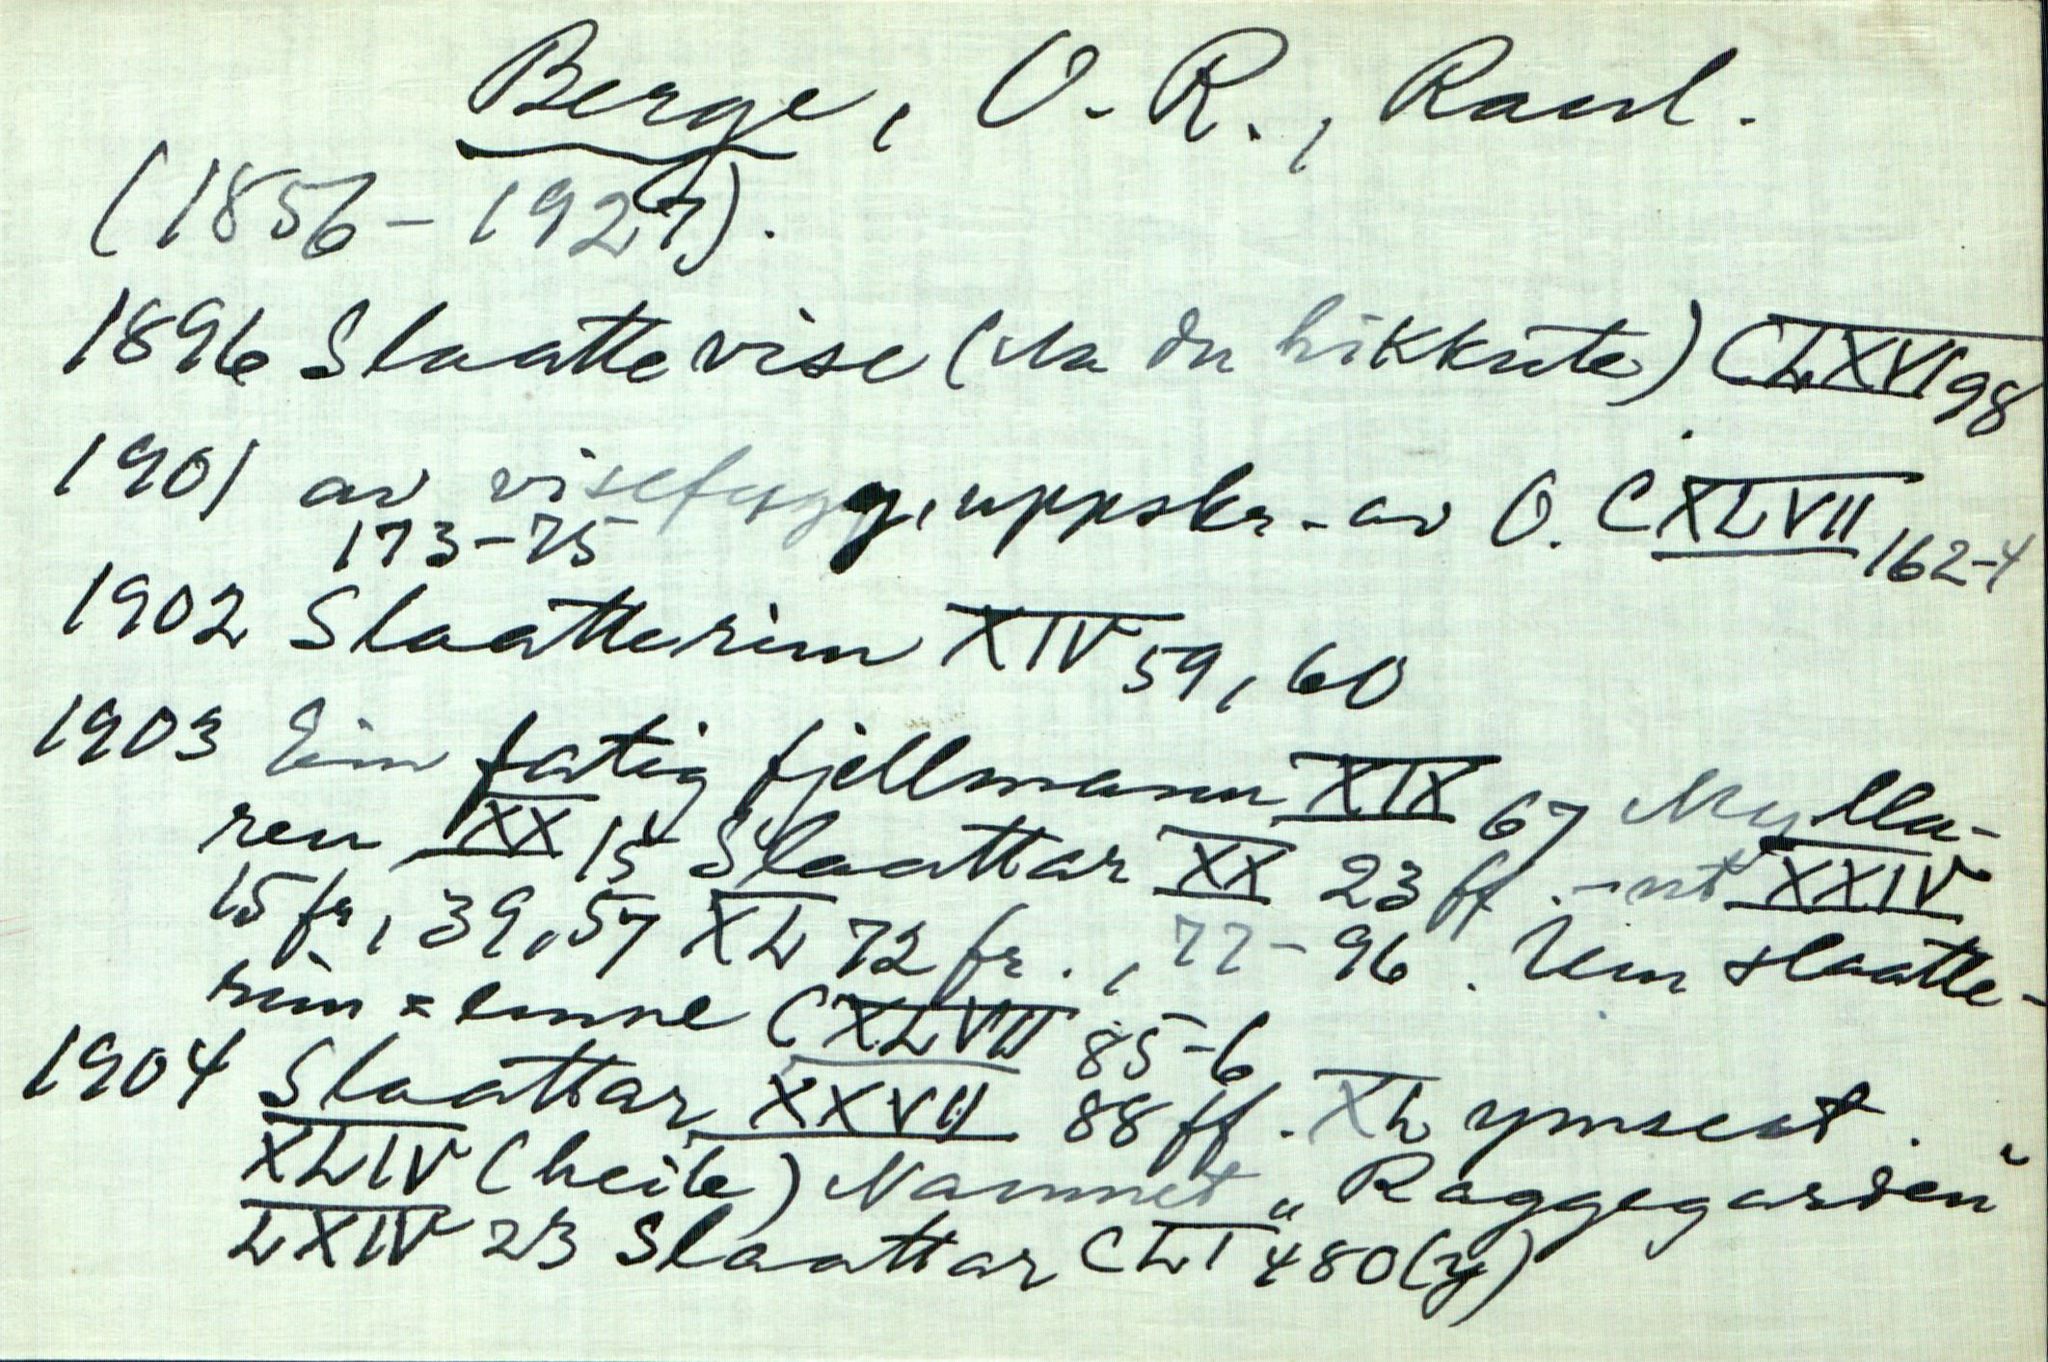 Berge, O. R., Raul.
(1856 - 1927).
1896 Slaattevise (Na du hikkste) CLXVI 98
1901 av visefugg, uppskr. av O. CXLVII 162-4
173-75
1902 Slaatterim XIV 59, 60
1903 Ein fatig fjellmann XIX 67 Mylla-
ren XX 15 Slaattar XX 23 ff. - nt XXIV
15 fr, 39, 57 XL 72 fr., 77-96. Um slaatte-
rim = emne CXLVII 85-6
1904 Slaattar XXVII 88 ff. XL ymseat.
XLIV (heile) Namnet „Raggegarden"
LXIV 23 Slaattar CLI 480(y)